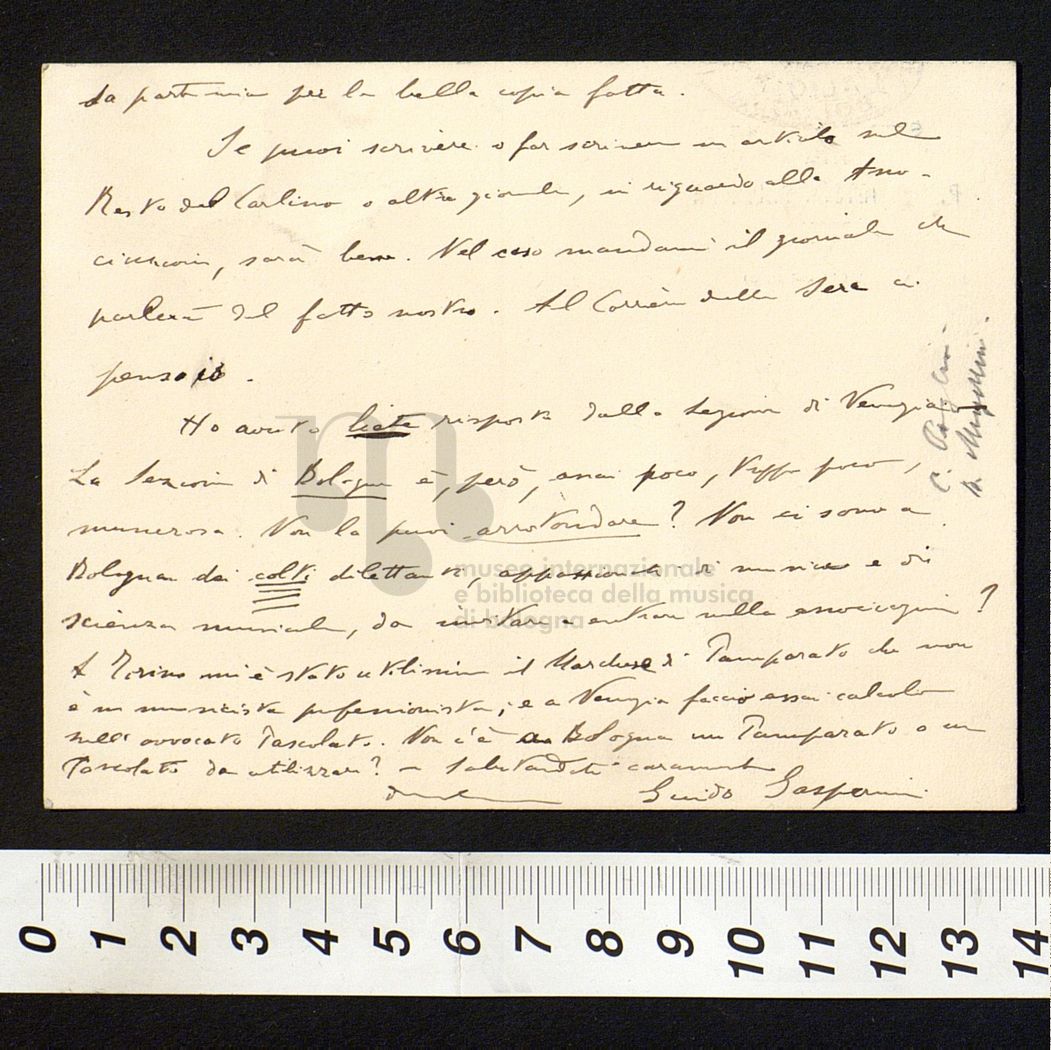 da parte mia per la bella copia fatta.
Se puoi scrivere o far scrivere un articolo sul
Resto del Carlino o altro giornale, in riguardo alla Asso-
ciazione, sarà bene. Nel caso mandami il giornale che
parlerà del fatto nostro. Al Corriere della Sera ci
penso io.
Ho avuto liete risposte dalla Sezione di Venezia
La Sezione di Bologna è, però, assai poco, troppo poco,
numerosa. Non la puoi arrotondare? Non ci sono a
Bologna dei colti dilettanti, appassionati di musica e di
scienza musicale, da invitare a entrare nella associazione?
A Torino mi è stato utilissimo il Marchese di Tamparato che non
è un musicista professionista, e a Venezia faccio assai calcolo
sull'avvocato Pascolato. Non c'è a Bologna un Tamparato o un
Pascolato da utilizzare? – Salutandoti caramente
Guido Gasperini
C.
museo internazionale
e biblioteca della musica
di bologna
0 1 2 3 4 5 6 7 8 9 10 11 12 13 14